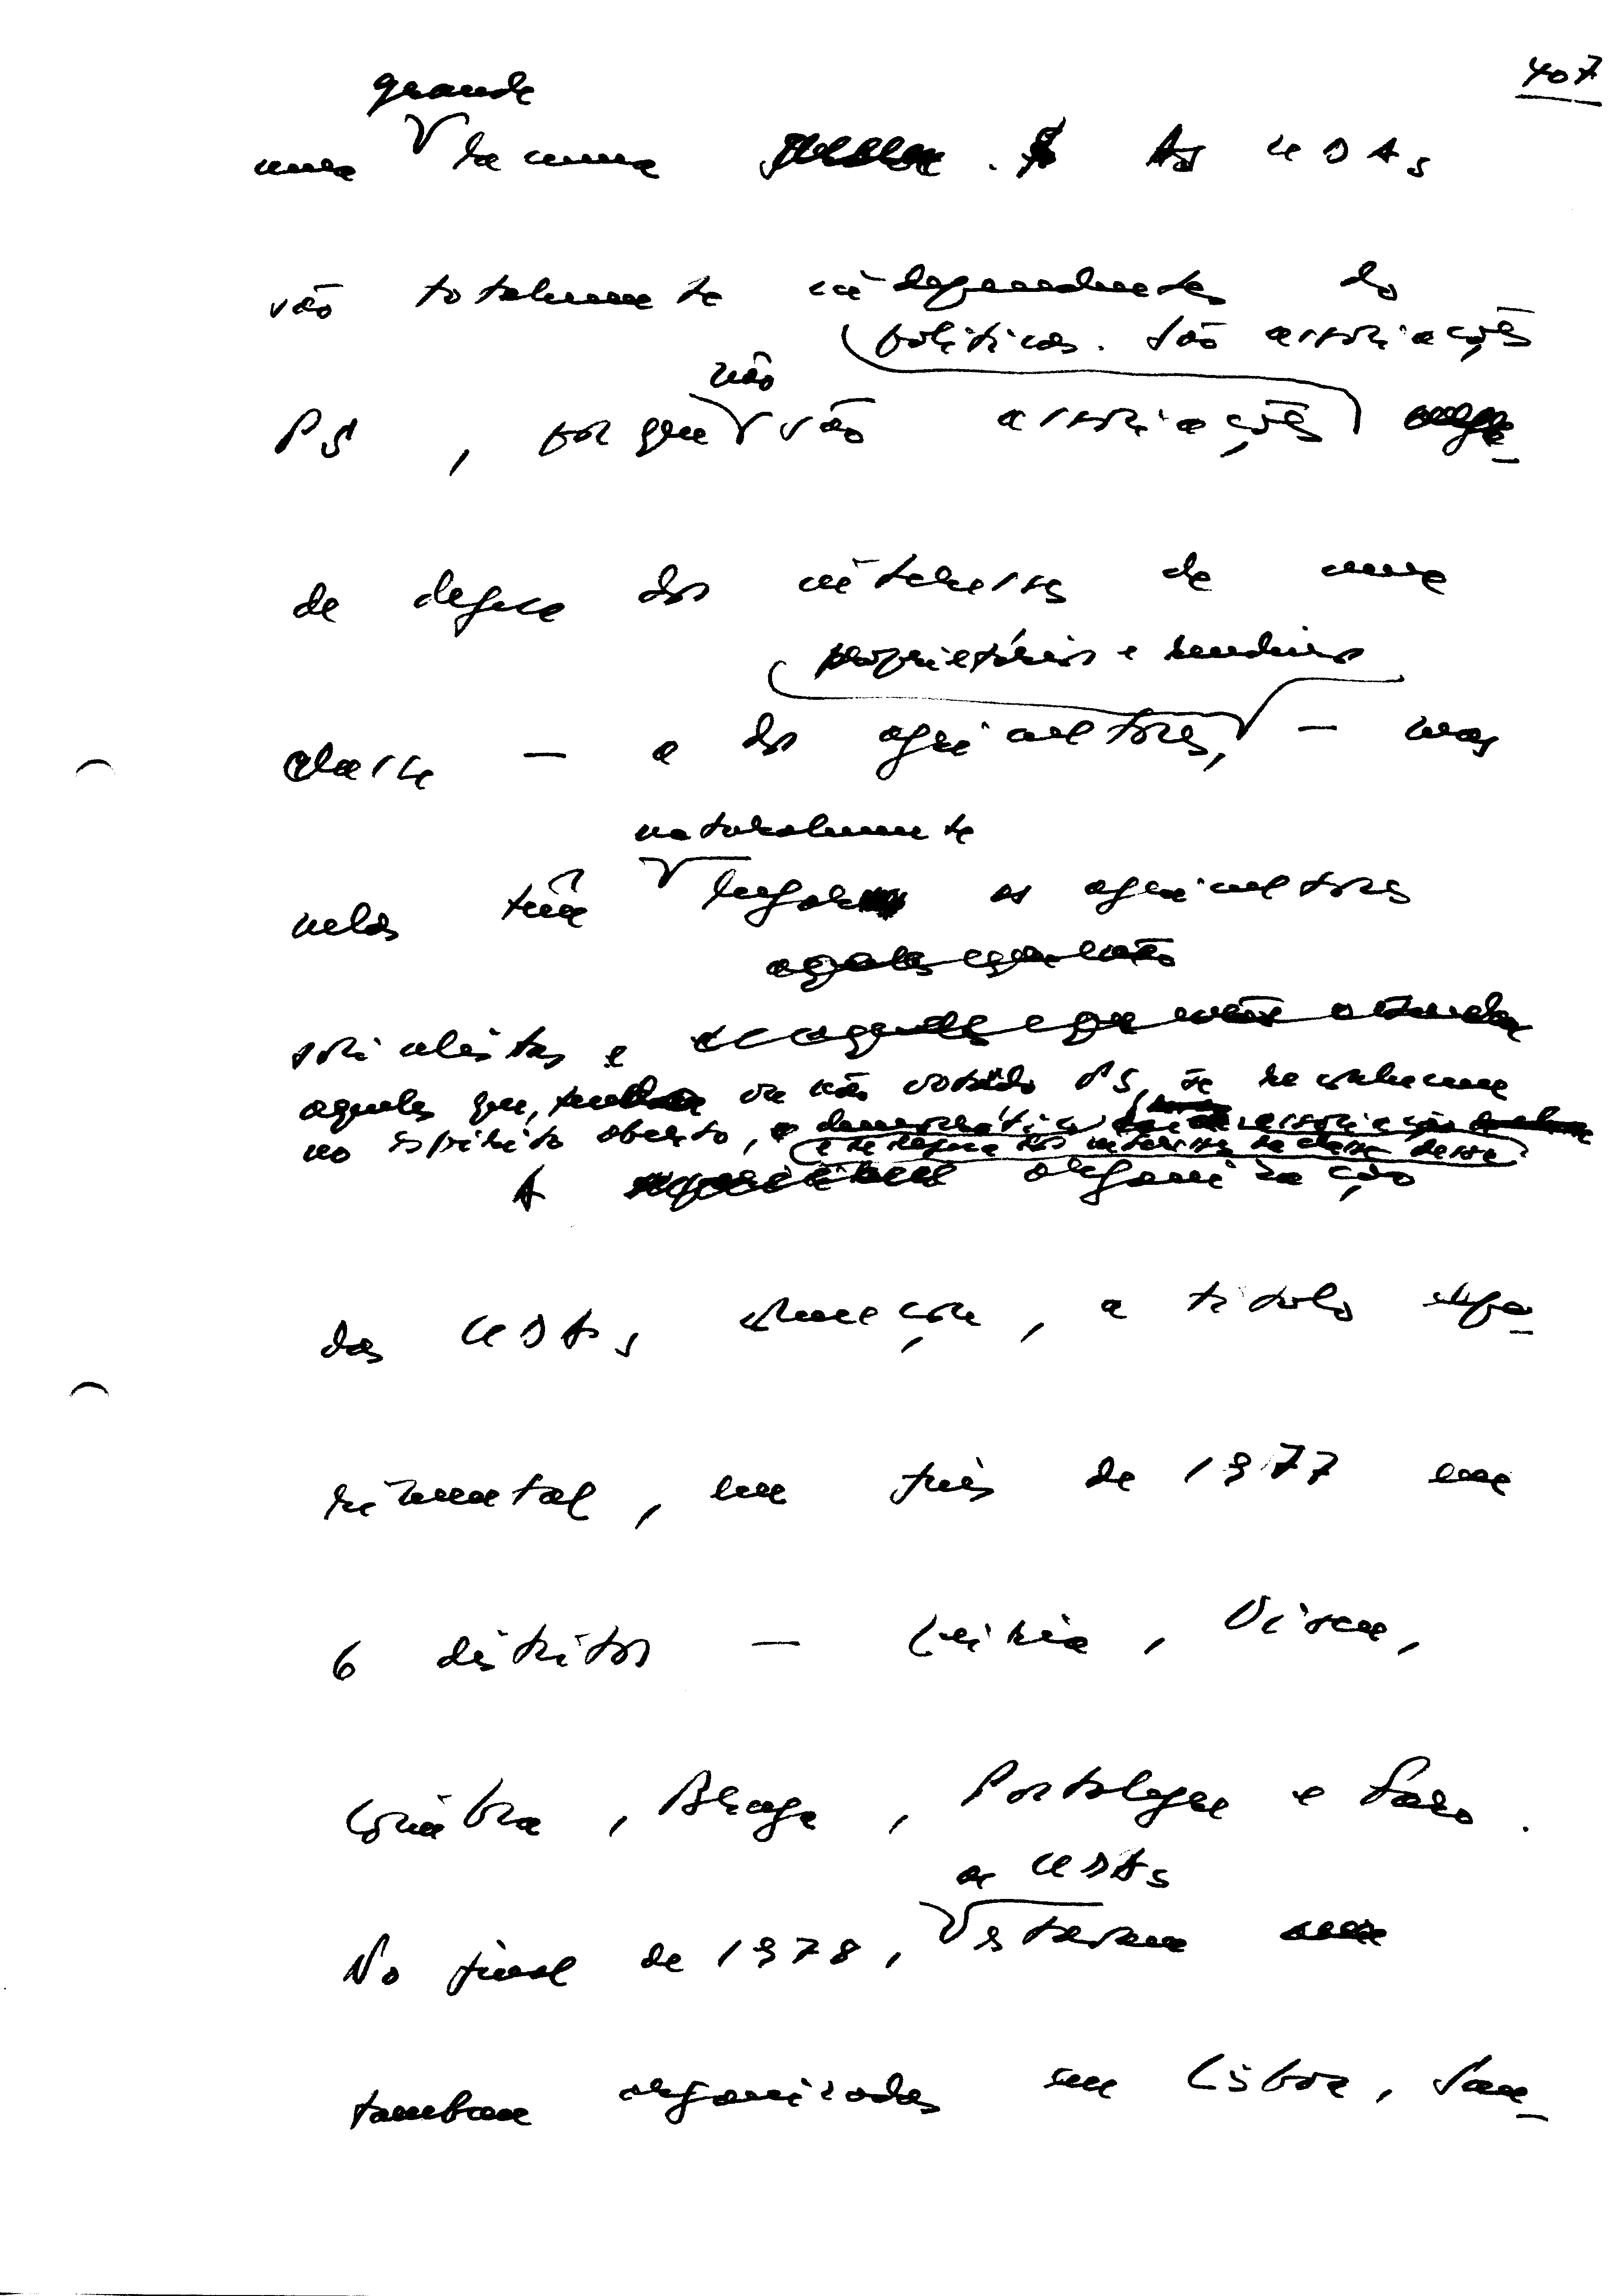 407
grande
uma lacuna . As UDAs
são totalmente independentes do
políticas. São associações
não
PS, porque são associações
de defesa dos interesses de uma
proprietários e rendeiros
classe — a dos agricultores, — mas
naturalmente
nelas têm lugar os agricultores
aqueles que não
socialistas e
aqueles que, ou não votado PS, se reconhecem
no espírito aberto, democrático associação
e de defesa dos interesses da classe dessa
A organização
das UDAs começou, a título expe-
rimental, em fins de 1977 em
6 distritos — Leiria, Viseu,
Coimbra, Braga, Portalegre e Faro.
as UDAs
No final de 1978, estavam
tambem organizadas em Lisboa, San-